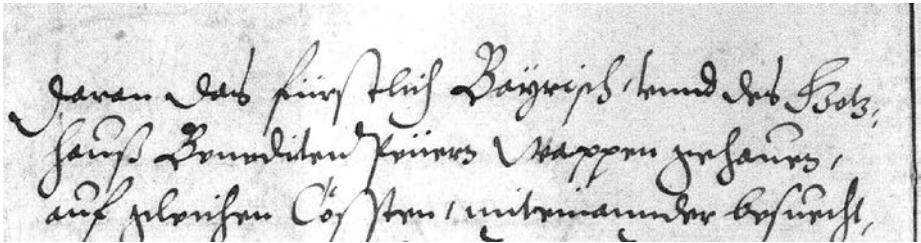 daran das fürstlich Bayrisch, vnnd des Gotz¬
hauß Benediten Peüern Wappen gehauen,
auf gleichen Cössten, miteinannder besuecht,